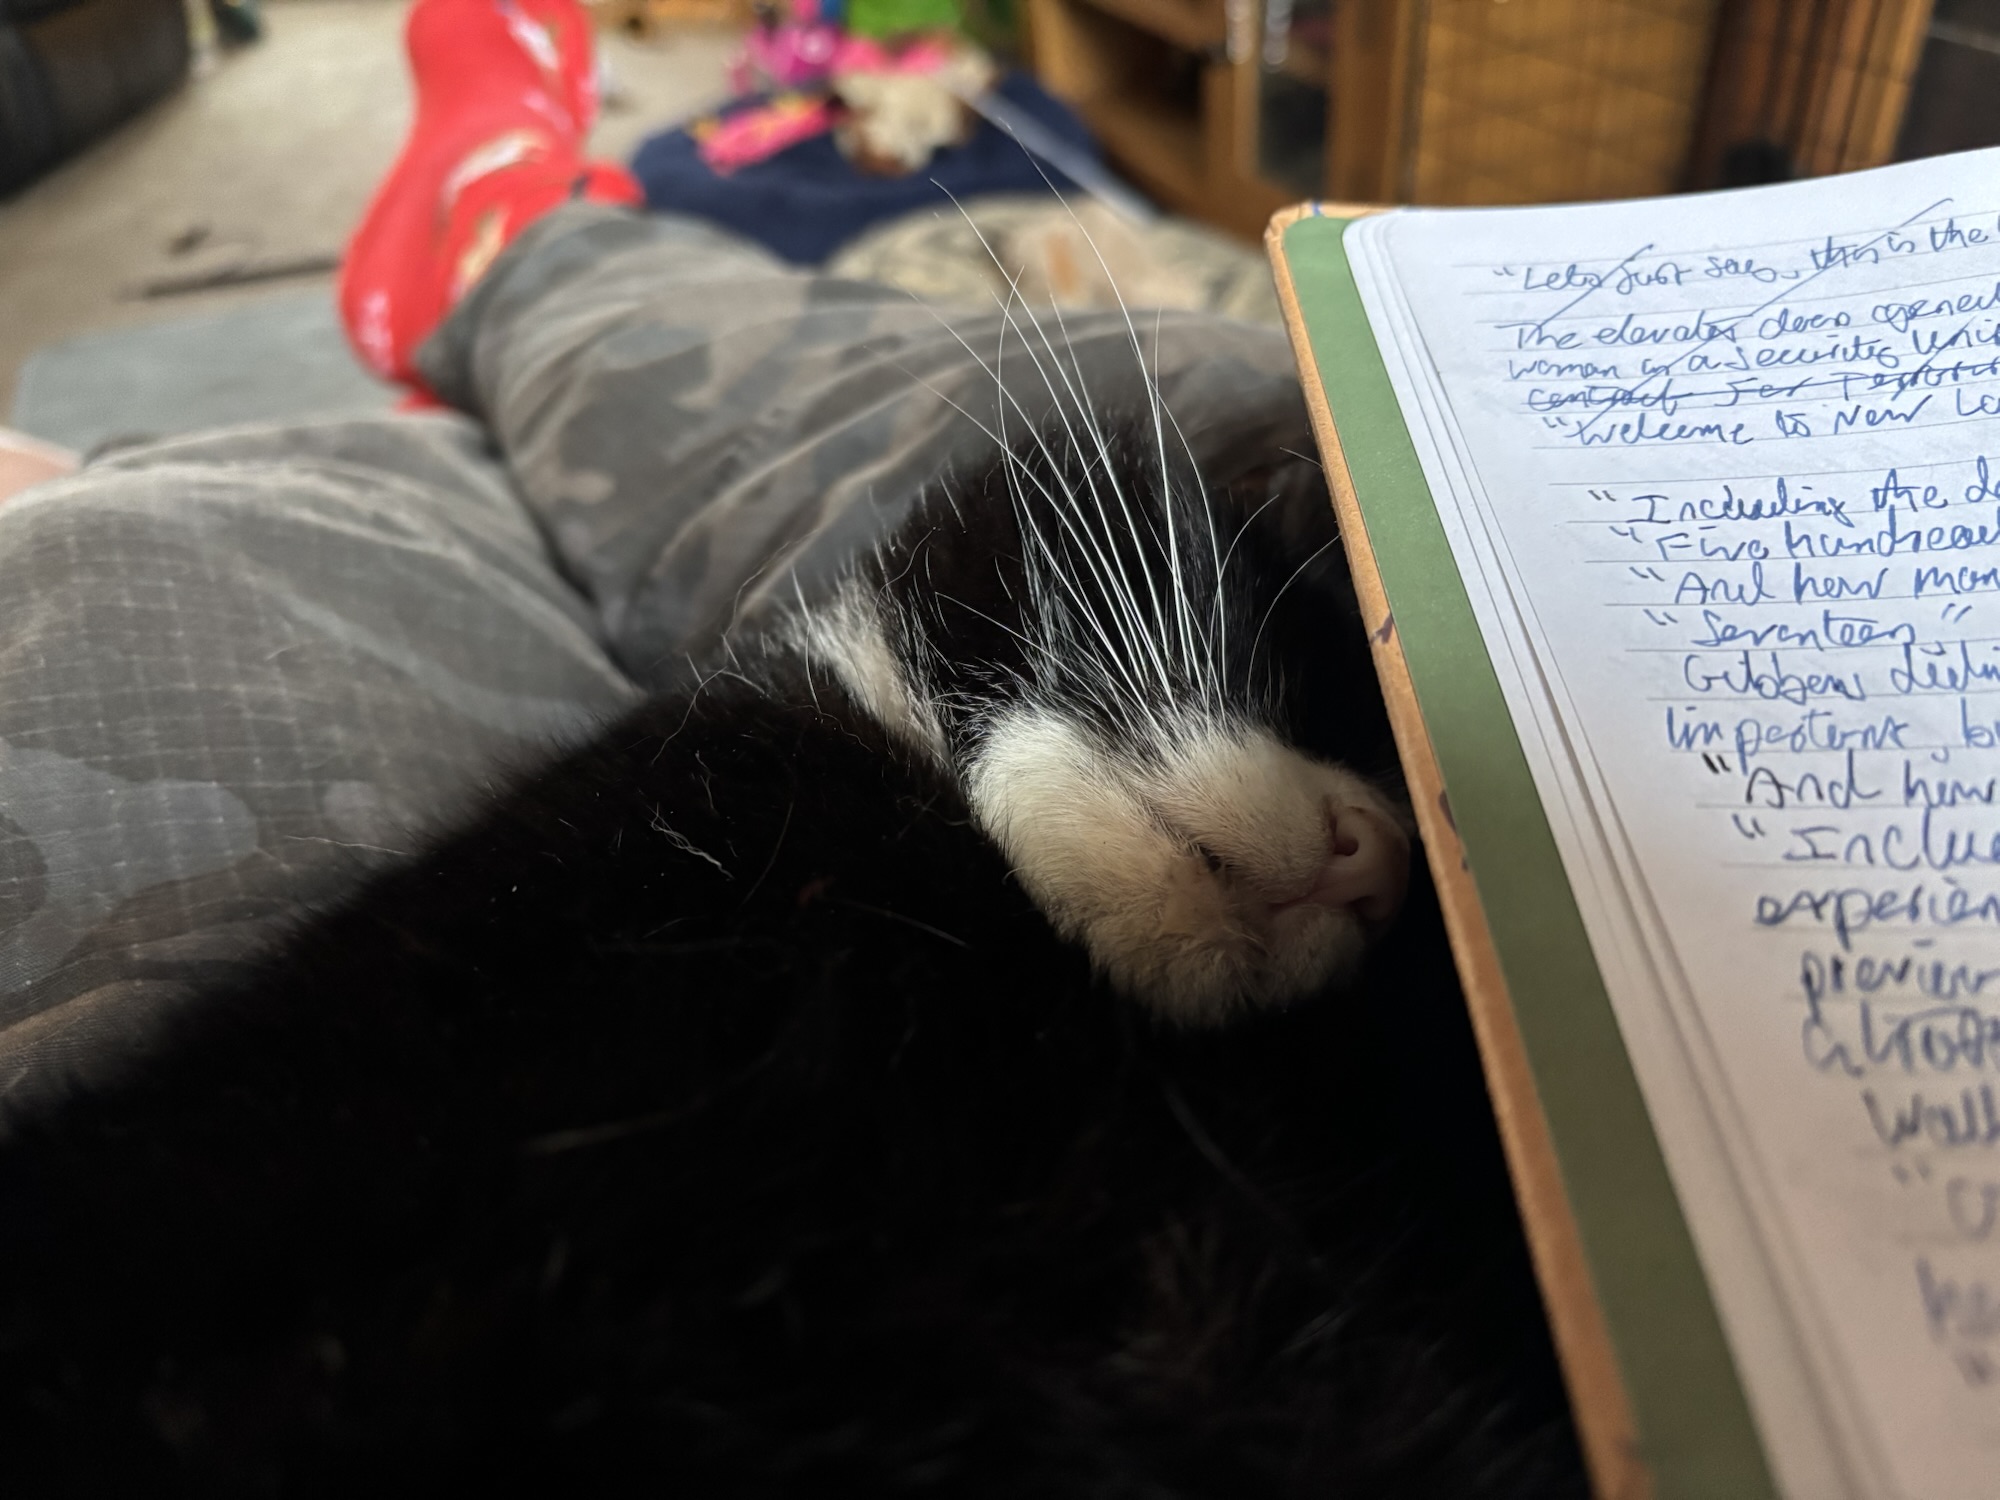 "Lets just say, this is the
The elevator doors opened
woman in a security Uni
contact for
"Welcome to New Lo
"Including the do
"Five hundred
"And how man
"Seventeen"
Gibben didn
important, bu
"And how
"Inclu
experien
previou
Wall